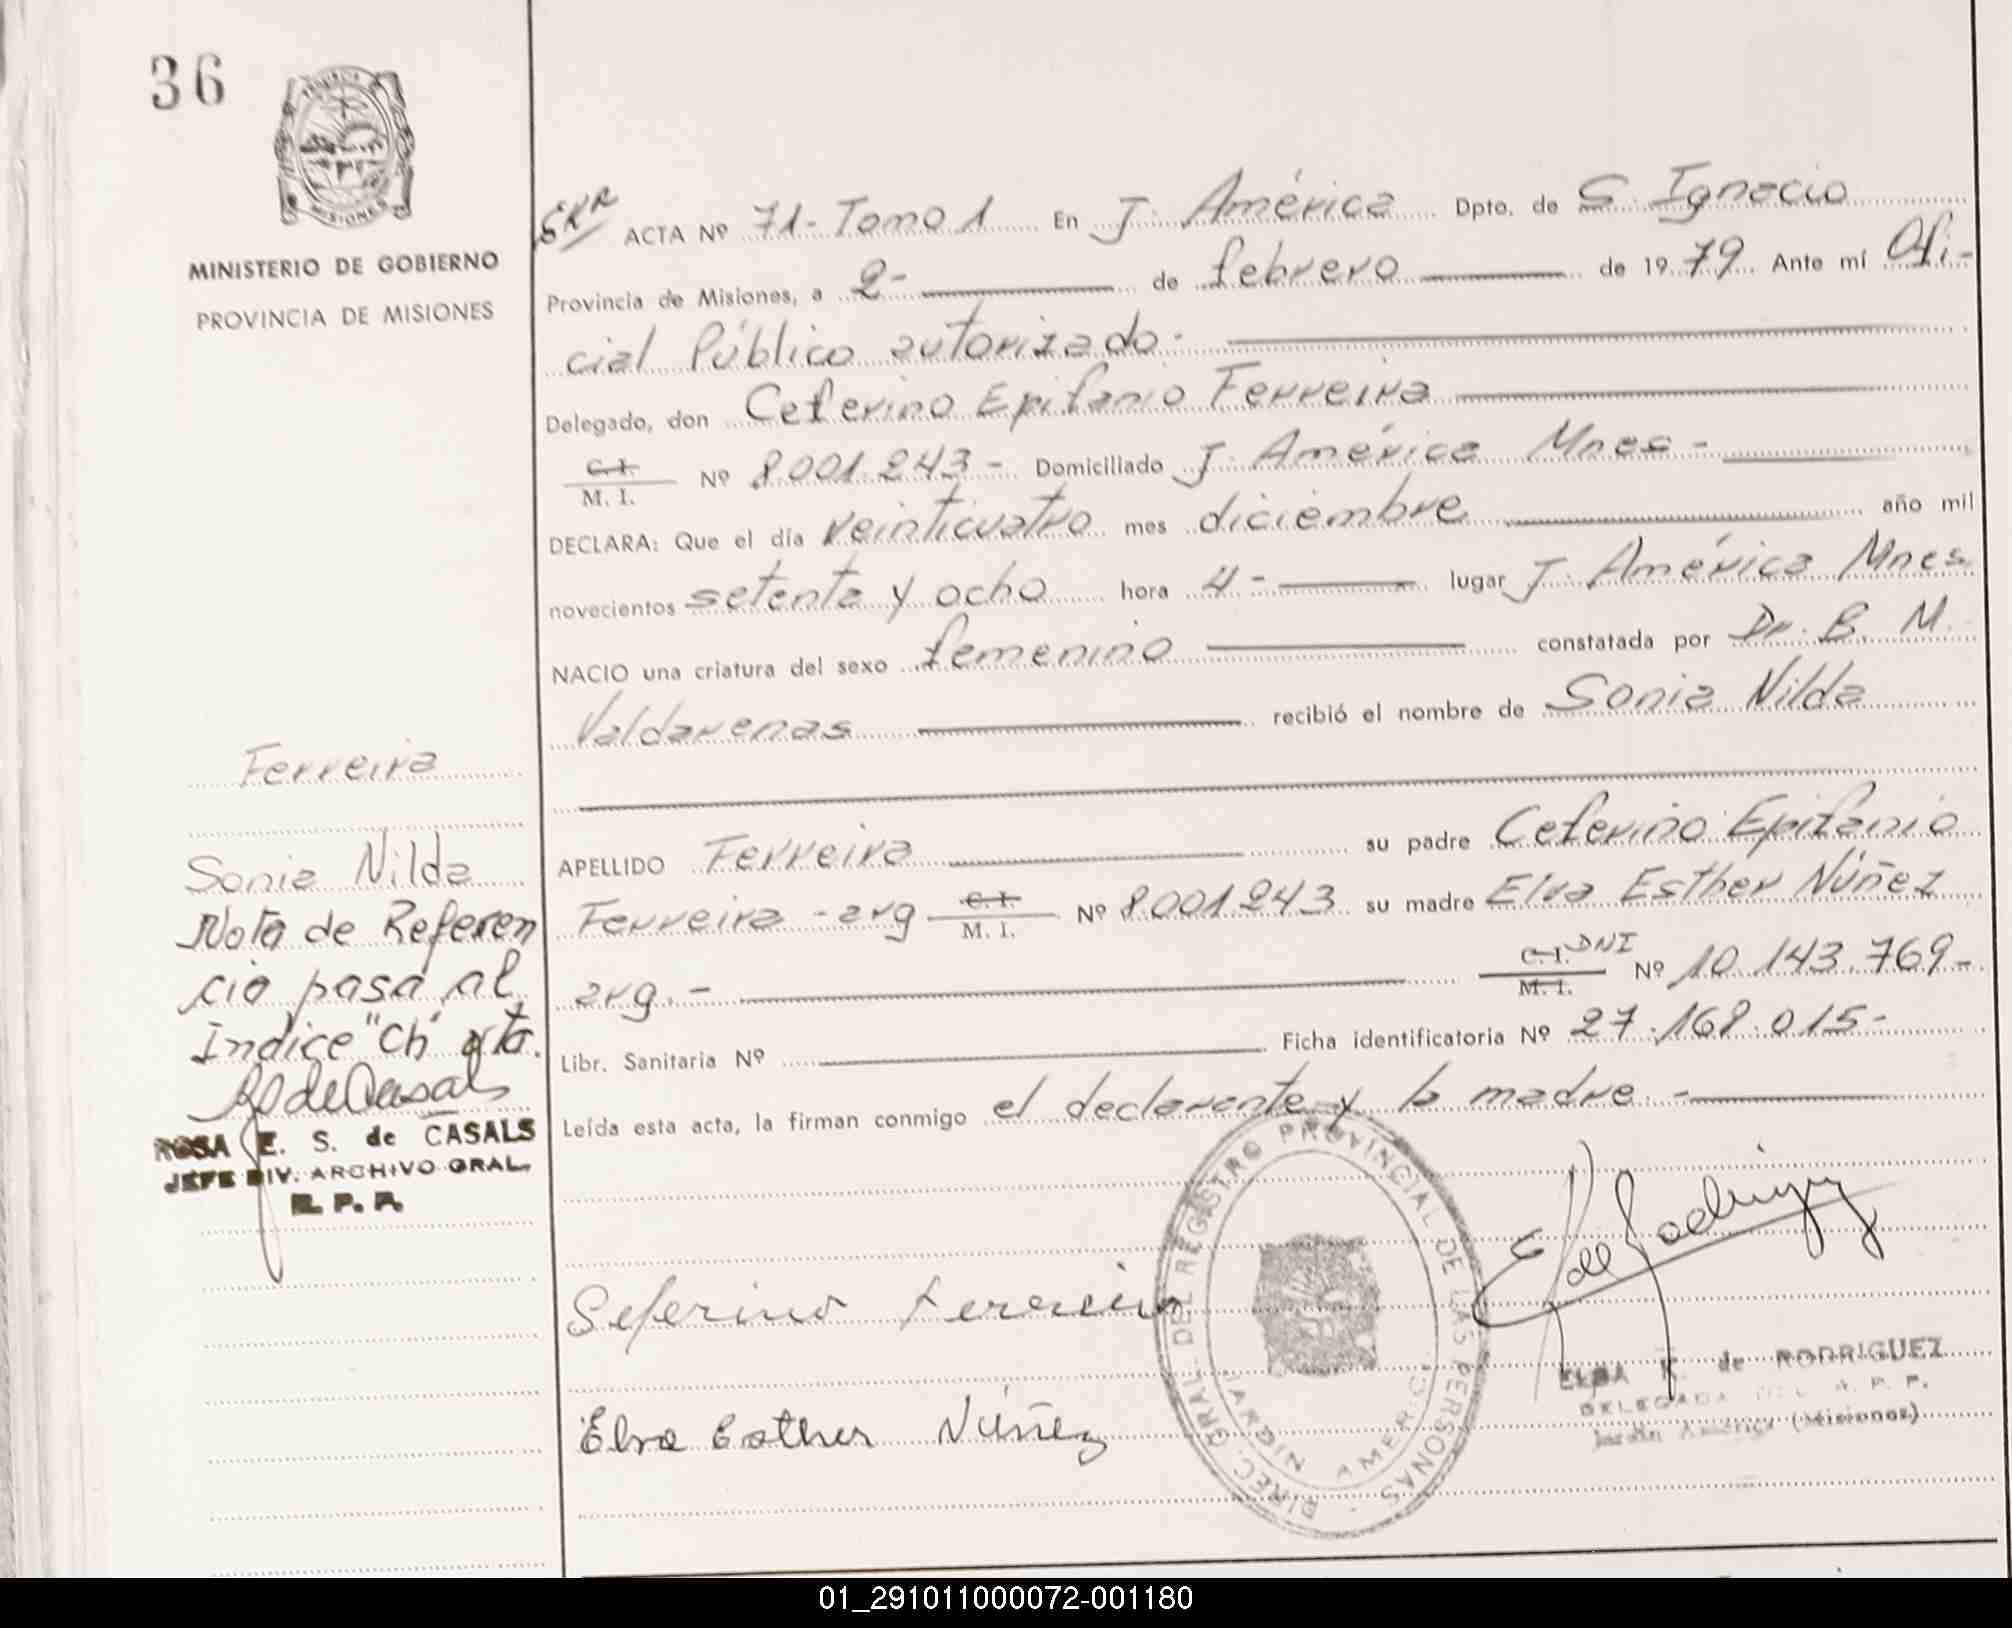 36
MINISTERIO DE GOBIERNO
PROVINCIA DE MISIONES
ACTA Nº 71-Tomo 1 En J. América Dpto. de S. Ignacio
Provincia de Misiones, a 2- de febrero de 1979. Ante mí Ofi-
cial Público autorizado.
Delegado, don Ceferino Epifanio Ferreira
C.I.
M. I. Nº 8.001.243- Domiciliado J. América Mnes-
DECLARA: Que el día veinticuatro mes diciembre año mil
novecientos setenta y ocho hora 4- lugar J. América Mnes
NACIO una criatura del sexo femenino constatada por Dr. B. M.
Valdarenas recibió el nombre de Sonia Nilda
APELLIDO Ferreira su padre Ceferino Epifanio
Ferreira -arg C.I. M. I. Nº 8.001.243 su madre Elva Esther Núñez
arg.- C.I. M.I. DNI Nº 10.143.769-
Libr. Sanitaria Nº Ficha identificatoria Nº 27.168.015-
Leída esta acta, la firman conmigo el declarante y la madre.-
Ferreira
Sonia Nilda
Nota de Referen
cia pasa al
Indice "Ch" 
RdeCasals
ROSA E. S. de CASALS
JEFE DIV. ARCHIVO GRAL.
R. P. P.
Seferino Ferreira
Elva Esther Núñez
E de Rodriguez
DIREC. GRAL. DEL REGISTRO PROVINCIAL DE LAS PERSONAS
JARDIN AMERICA
ELBA K. de RODRIGUEZ
DELEGADA DEL R. P. P.
Jardín América (Misiones)
01_291011000072-001180